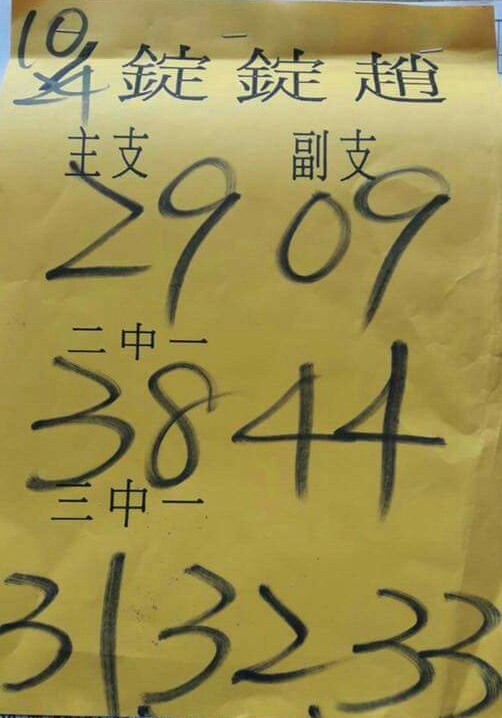 10/24 錠錠趙
主支 副支
29 09
二中一
38 44
三中一
31.32.33